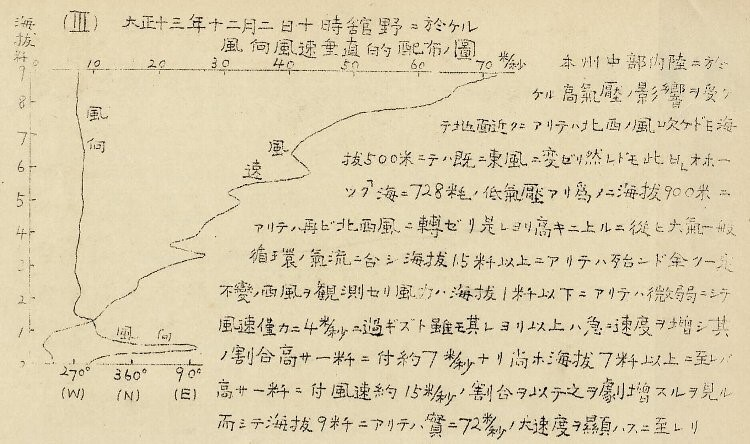 (III) 大正十三年十二月二日十時舘野ニ於ケル
風向風速垂直的配布ノ圖
海抜粁
0 10 20 30 40 50 60 70 米/秒
9
8
7
6
5
4
3
2
1
0
風向
風速
風向
270° 360° 90°
(W) (N) (E)
本州中部内陸ニ於
ケル高氣壓ノ影響ヲ受ケ
テ地面近クニアリテハ北西ノ風吹ケドモ海
抜500米ニテハ既ニ東風ニ変ゼリ然レドモ此日オホー
ツク海ニ728粍ノ低氣壓アリ爲ノニ海抜900米ニ
アリテハ再ビ北西風ニ轉ゼリ是レヨリ高キニ上ルニ從ヒ大氣一般
循環ノ氣流ニ合シ海抜1.5粁以上ニアリテハ殆ンド全ク一定
不變ノ西風ヲ観測セリ風力ハ海抜1粁以下ニアリテハ微弱ニシテ
風速僅カニ4米/秒ニ過ギズト雖モ其レヨリ以上ハ急ニ速度ヲ増シ其
ノ割合高サ一粁ニ付約7米/秒ナリ尚ホ海抜7粁以上ニ至レバ
高サ一粁ニ付風速約15米/秒ノ割合ヲ以テ之ヲ劇増スルヲ見ル
而シテ海抜9粁ニアリテハ實ニ72米/秒ノ大速度ヲ顯ハスニ至レリ